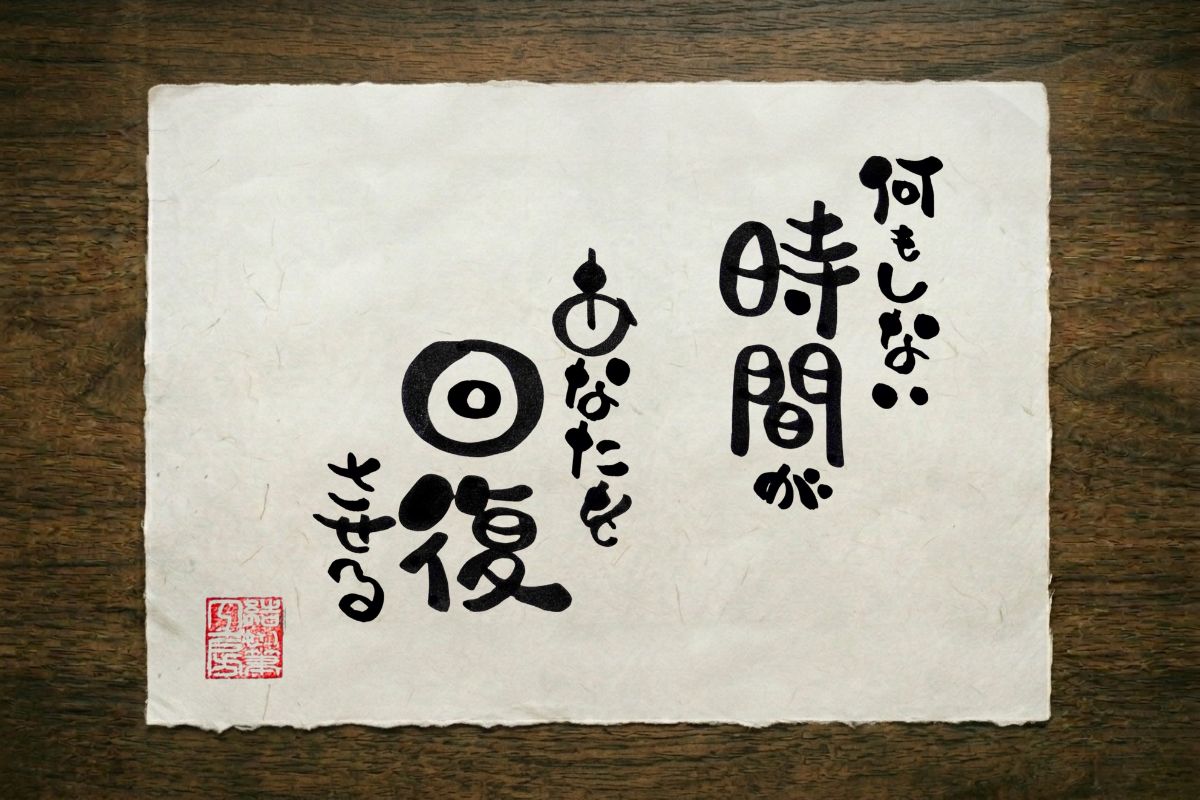 何もしない
時間が
あなたを
回復
させる